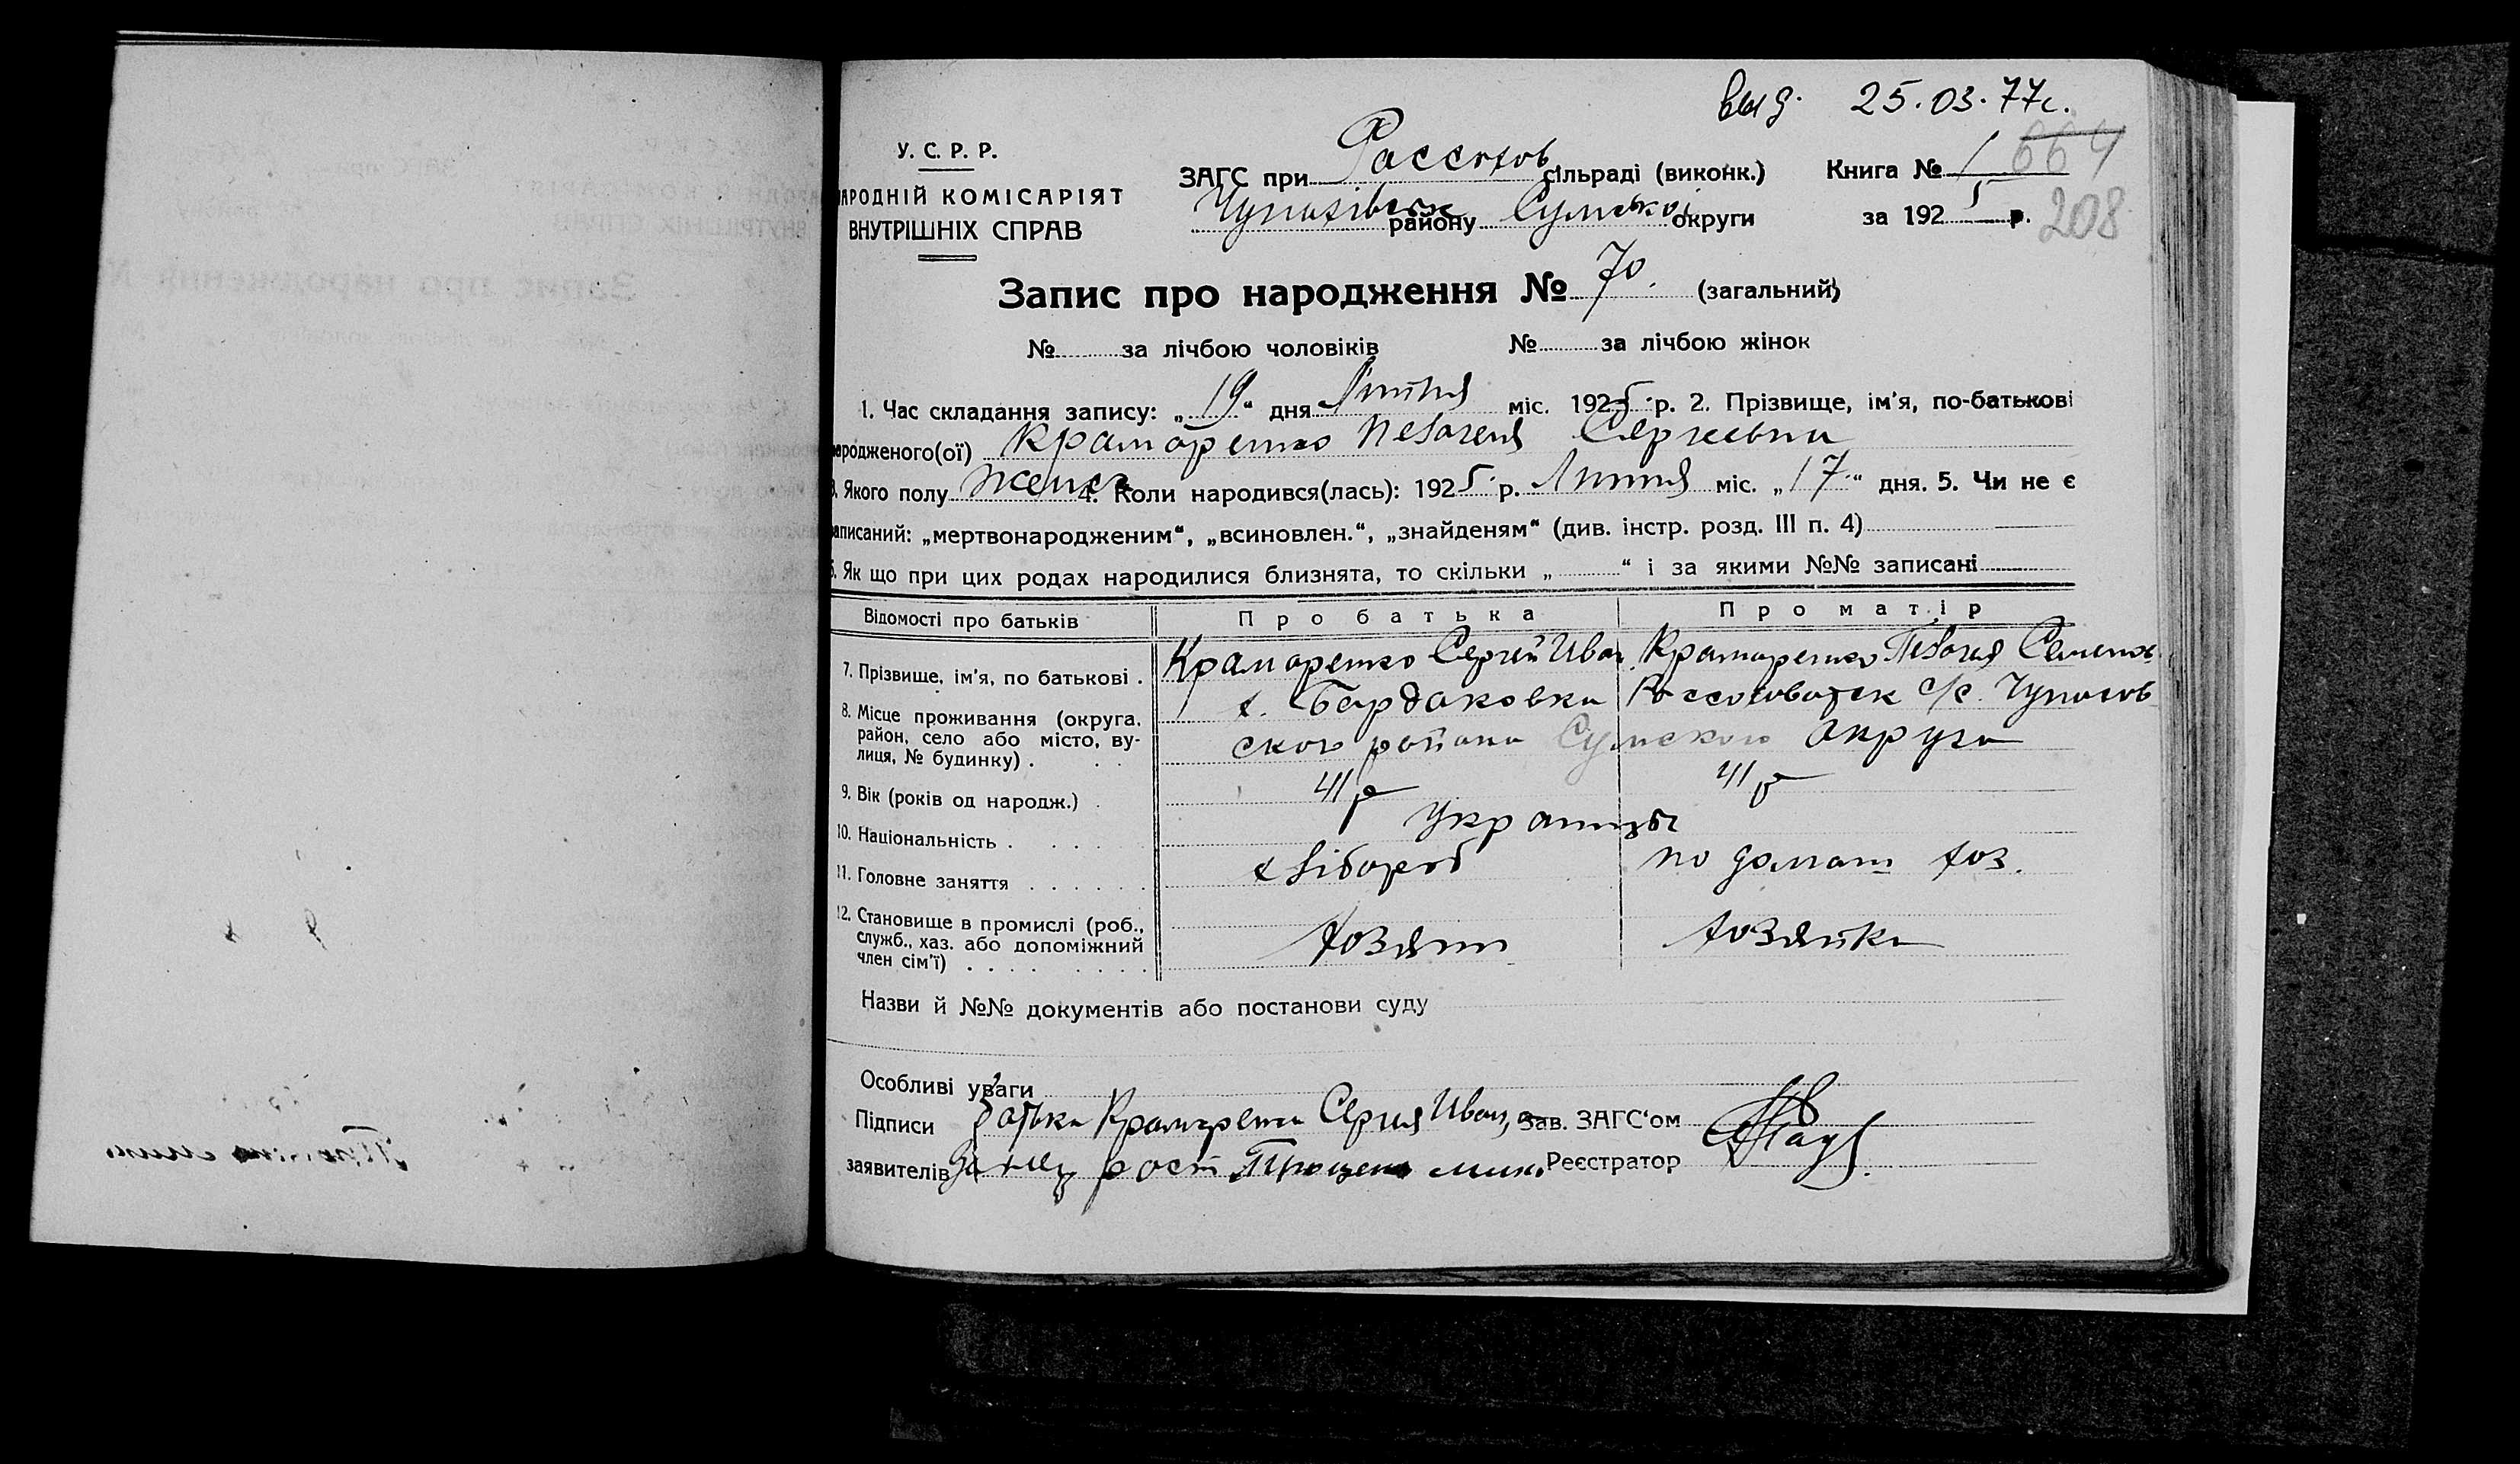 выд. 25.03.77г.
У. С. Р. Р.
НАРОДНІЙ КОМІСАРІЯТ
ВНУТРІШНІХ СПРАВ
ЗАГС при Рассохов сільраді (виконк.)
району Сумської округи
Книга № 1 664
за 1925 р. 208
Запис про народження № 70. (загальний)
№ за лічбою чоловіків № за лічбою жінок
1. Час складання запису: „19“ дня Липня міс. 1925 р. 2. Прізвище, ім'я, по-батькові
народженого(ої) Крамаренко Пелагея Сергеевна
3. Якого полу женск 4. Коли народився(лась): 1925 р. Липня міс. „17“ дня. 5. Чи не є
записаний: „мертвонародженим“, „всиновлен.“, „знайденям“ (див. інстр. розд. III п. 4)
6. Як що при цих родах народилися близнята, то скільки „ “ і за якими №№ записані
Відомості про батьків Про батька Про матір
7. Прізвище, ім'я, по батькові . Крамаренко Сергей Иван. Крамаренко Пелагея Семенов.
8. Місце проживання (округа, район, село або місто, вулиця, № будинку) . х. Бардаковка с/с.
ского района Сумского округа
9. Вік (років од народж.) . 41 р 41 р
10. Національність . украинцы
11. Головне заняття хлібороб по домаш хоз.
12. Становище в промислі (роб., служб., хаз. або допоміжний член сім'ї) хозяин хозяйка
Назви й №№ документів або постанови суду
Особливі уваги
Підписи батька Крамаренка Сергия Иван, Зав. ЗАГС'ом
заявителів Реєстратор